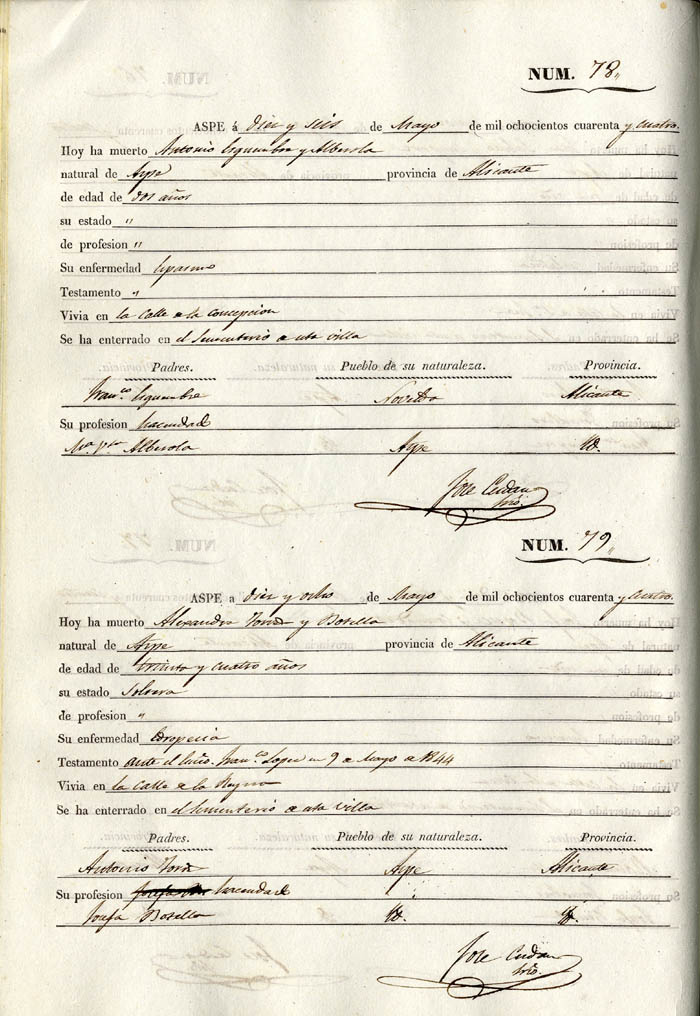 NUM. 78,,
ASPE á diez y seis de Mayo de mil ochocientos cuarenta y cuatro.
Hoy ha muerto Antonio y Alberola
natural de Aspe provincia de Alicante
de edad de dos años
su estado "
de profesion "
Su enfermedad
Testamento "
Vivia en la Calle de la Concepcion
Se ha enterrado en el Sementerio de esta villa
Padres. Pueblo de su naturaleza. Provincia.
Franco. Novelda Alicante
Su profesion hacendad
Ma. Alberola Aspe Yd.
Jose
NUM. 79,,
ASPE a diez y ocho de Mayo de mil ochocientos cuarenta y cuatro.
Hoy ha muerto Alexandra y Botella
natural de Aspe provincia de Alicante
de edad de treinta y cuatro años
su estado Soltera
de profesion "
Su enfermedad
Testamento ante el Franco. Lopez en 9 de Mayo de 1844
Vivia en la Calle de la Reyna
Se ha enterrado en el Sementerio de esta Villa
Padres. Pueblo de su naturaleza. Provincia.
Antonio Aspe Alicante
Su profesion hacendad
Josefa Botella Yd. Yd.
Jose